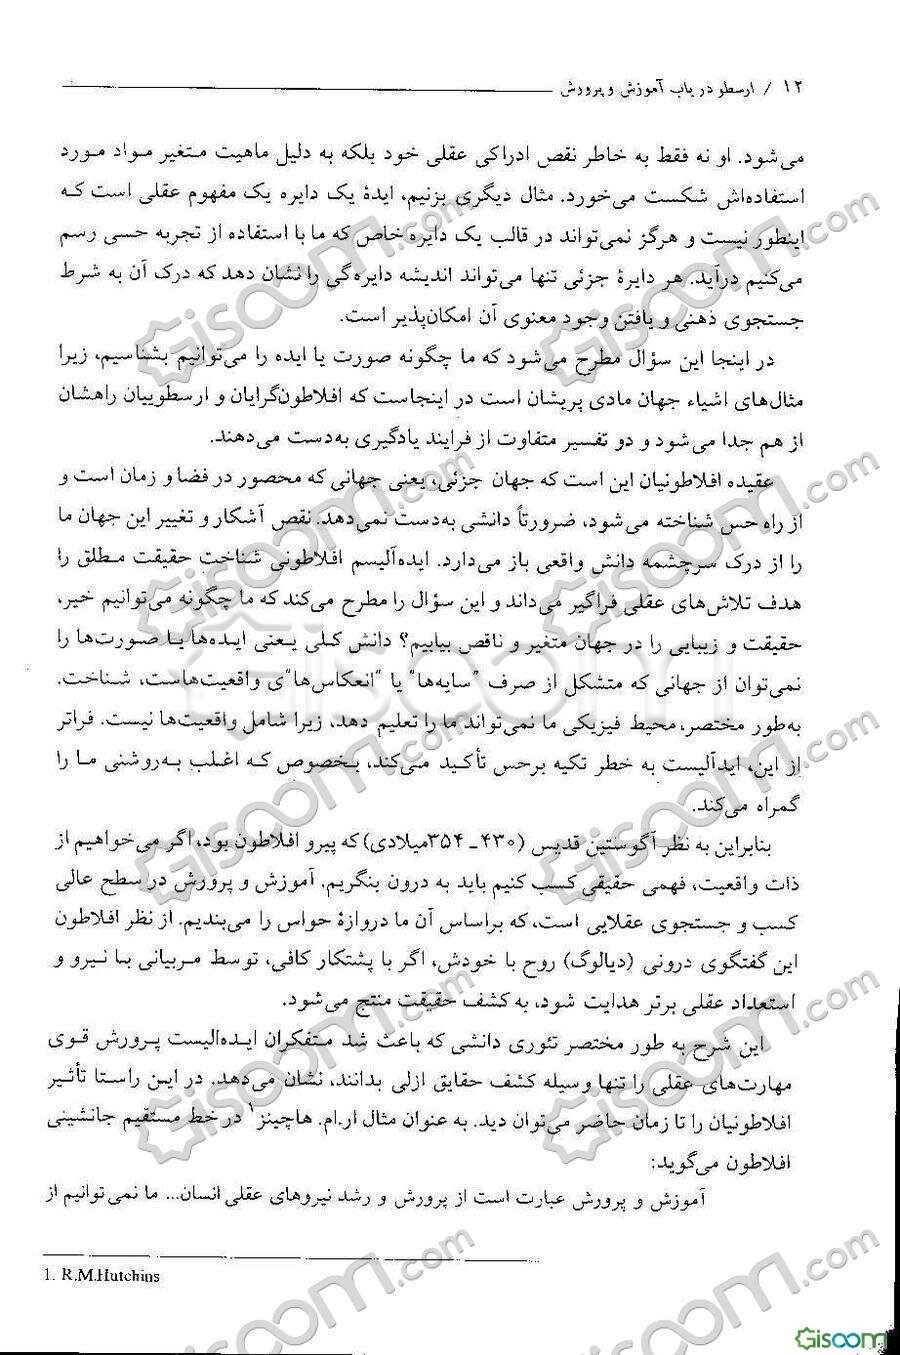 ۱۲ / ارسطو در باب آموزش و پرورش
می‌شود. او نه فقط به خاطر نقص ادراکی عقلی خود بلکه به دلیل ماهیت متغیر مواد مورد
استفاده‌اش شکست می‌خورد. مثال دیگری بزنیم، ایدهٔ یک دایره یک مفهوم عقلی است که
اینطور نیست و هرگز نمی‌تواند در قالب یک دایره خاص که ما با استفاده از تجربه حسی رسم
می‌کنیم درآید. هر دایرهٔ جزئی تنها می‌تواند اندیشه دایره‌گی را نشان دهد که درک آن به شرط
جستجوی ذهنی و یافتن وجود معنوی آن امکان‌پذیر است.
در اینجا این سؤال مطرح می‌شود که ما چگونه صورت یا ایده را می‌توانیم بشناسیم، زیرا
مثال‌های اشیاء جهان مادی پریشان است در اینجاست که افلاطون‌گرایان و ارسطوییان راهشان
از هم جدا می‌شود و دو تفسیر متفاوت از فرایند یادگیری به‌دست می‌دهند.
عقیده افلاطونیان این است که جهان جزئی، یعنی جهانی که محصور در فضا و زمان است و
از راه حس شناخته می‌شود، ضرورتاً دانشی به‌دست نمی‌دهد. نقص آشکار و تغییر این جهان ما
را از درک سرچشمه دانش واقعی باز می‌دارد. ایده‌آلیسم افلاطونی شناخت حقیقت مطلق را
هدف تلاش‌های عقلی فراگیر می‌داند و این سؤال را مطرح می‌کند که ما چگونه می‌توانیم خیر،
حقیقت و زیبایی را در جهان متغیر و ناقص بیابیم؟ دانش کلی یعنی ایده‌ها یا صورت‌ها را
نمی‌توان از جهانی که متشکل از صرف "سایه‌ها" یا "انعکاس‌ها"ی واقعیت‌هاست، شناخت.
به‌طور مختصر، محیط فیزیکی ما نمی‌تواند ما را تعلیم دهد، زیرا شامل واقعیت‌ها نیست. فراتر
از این، ایدآلیست به خطر تکیه برحس تأکید می‌کند، بخصوص که اغلب به‌روشنی ما را
گمراه می‌کند.
بنابراین به نظر آگوستین قدیس (۴۳۰ ـ ۳۵۴میلادی) که پیرو افلاطون بود، اگر می‌خواهیم از
ذات واقعیت، فهمی حقیقی کسب کنیم باید به درون بنگریم. آموزش و پرورش در سطح عالی
کسب و جستجوی عقلایی است، که براساس آن ما دروازهٔ حواس را می‌بندیم. از نظر افلاطون
این گفتگوی درونی (دیالوگ) روح با خودش، اگر با پشتکار کافی، توسط مربیانی با نیرو و
استعداد عقلی برتر هدایت شود، به کشف حقیقت منتج می‌شود.
این شرح به طور مختصر تئوری دانشی که باعث شد متفکران ایده‌الیست پرورش قوی
مهارت‌های عقلی را تنها وسیله کشف حقایق ازلی بدانند، نشان می‌دهد. در این راستا تأثیر
افلاطونیان را تا زمان حاضر می‌توان دید. به عنوان مثال ار.ام. هاچینز۱ در خط مستقیم جانشینی
افلاطون می‌گوید:
آموزش و پرورش عبارت است از پرورش و رشد نیروهای عقلی انسان... ما نمی‌توانیم از
1. R.M.Hutchins
Gisoom